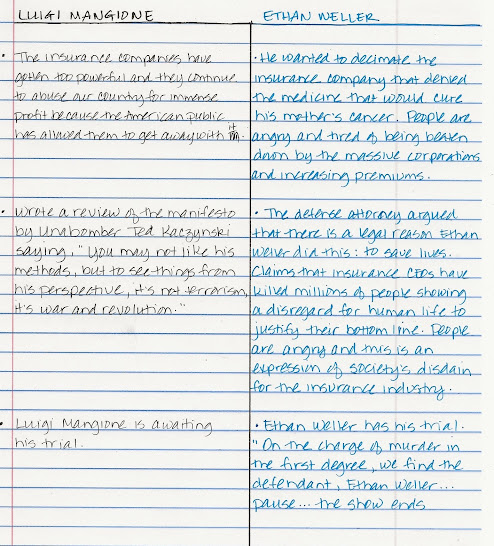 LUIGI MANGIONE
• The insurance companies have
gotten too powerful and they continue
to abuse our country for immense
profit because the American public
has allowed them to get away with it.
• Wrote a review of the manifesto
by Unabomber Ted Kaczynski
saying, "You may not like his
methods, but to see things from
his perspective, it's not terrorism,
it's war and revolution."
• Luigi Mangione is awaiting
his trial.
ETHAN WELLER
• He wanted to decimate the
insurance company that denied
the medicine that would cure
his mother's cancer. People are
angry and tired of being beaten
down by the massive corporations
and increasing premiums.
• The defense attorney argued
that there is a legal reason Ethan
Weller did this: to save lives.
Claims that insurance CEOs have
killed millions of people showing
a disregard for human life to
justify their bottom line. People
are angry and this is an
expression of society's disdain
for the insurance industry.
• Ethan Weller has his trial.
"On the charge of murder in
the first degree, we find the
defendant, Ethan Weller...
pause... the show ends